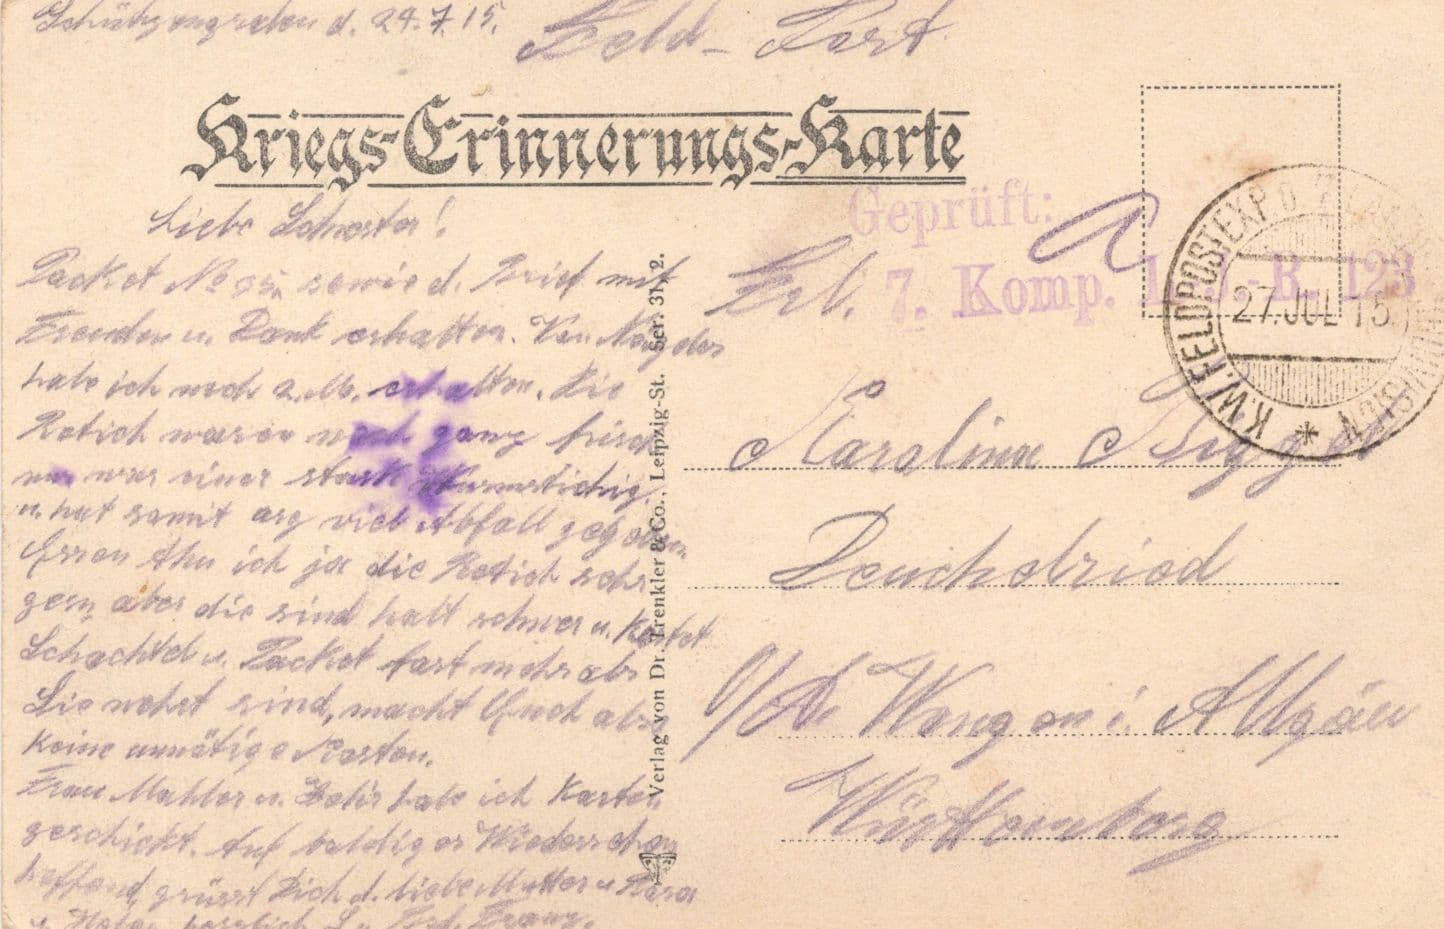 Schützengraben d. 24.7.15.
Feld-Post
Kriegs-Erinnerungs-Karte
Liebe Schwester!
Packet No sowie d. Brief mit
Freuden u. Dank erhalten. Von
habe ich noch erhalten. Die
Retich waren noch ganz frisch
nur war einer stark Wurmstichig
u. hat somit arg viel Abfall gegeben.
Essen thu ich ja die Retich sehr
gern, aber die sind halt schwer u. kostet
Schachtel u. Packet fast mehr als
Sie wehrt sind, macht Euch also
keine unnötige Kosten.
Frau Mahler u. habe ich Karten
geschickt. Auf baldiges Wiedersehen
hoffend, grüsst Dich d. liebe Mutter u. Rosa
u. herzlich Franz.
Verlag von Dr. Trenkler & Co., Leipzig-St. Ser. 31, 2.
Geprüft:
7. Komp. L.-I.-R. 123
K.W. FELDPOSTEXP. D. 7. LANDW. DIVISION
27.JUL 15
Frl.
Karolina
Deuchelried
O/A. Wangen i. Allgäu
Württemberg